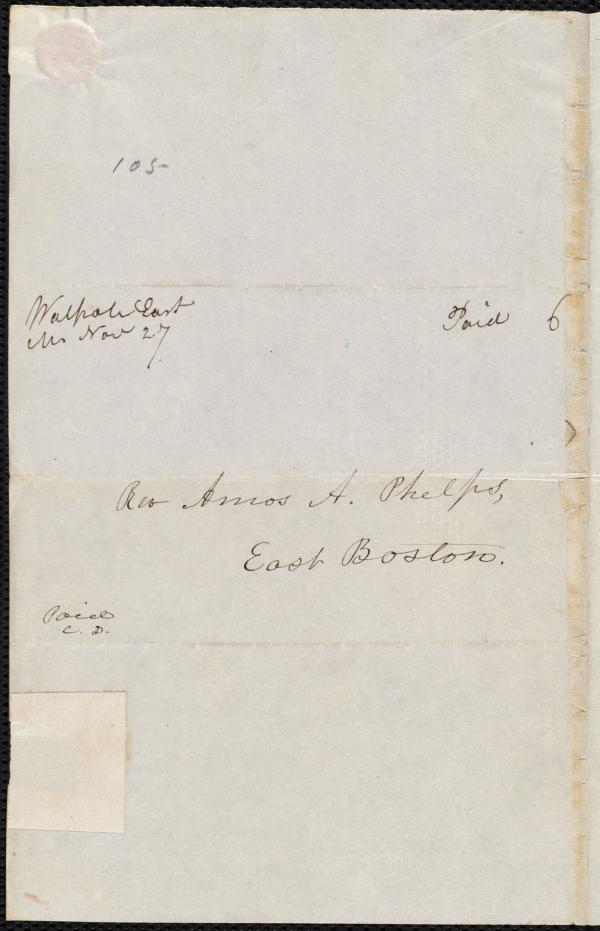 105
Walpole East
Ms Nov 27
Paid 6
Rev Amos A. Phelps,
East Boston.
Paid
C. D.